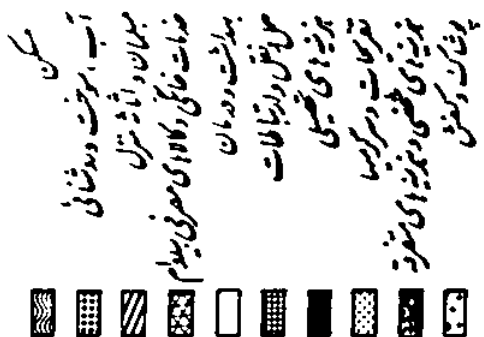 مسکن
آب، سوخت و روشنائی
مبلمان و اثاثه منزل
خدمات خانگی و کالاهای مصرفی بیدوام
بهداشت و درمان
حمل و نقل و ارتباطات
هزینه‌های تحصیلی
تفریحات و سرگرمیها
هزینه‌های شخصی و هزینه‌های متفرقه
پوشاک و کفش